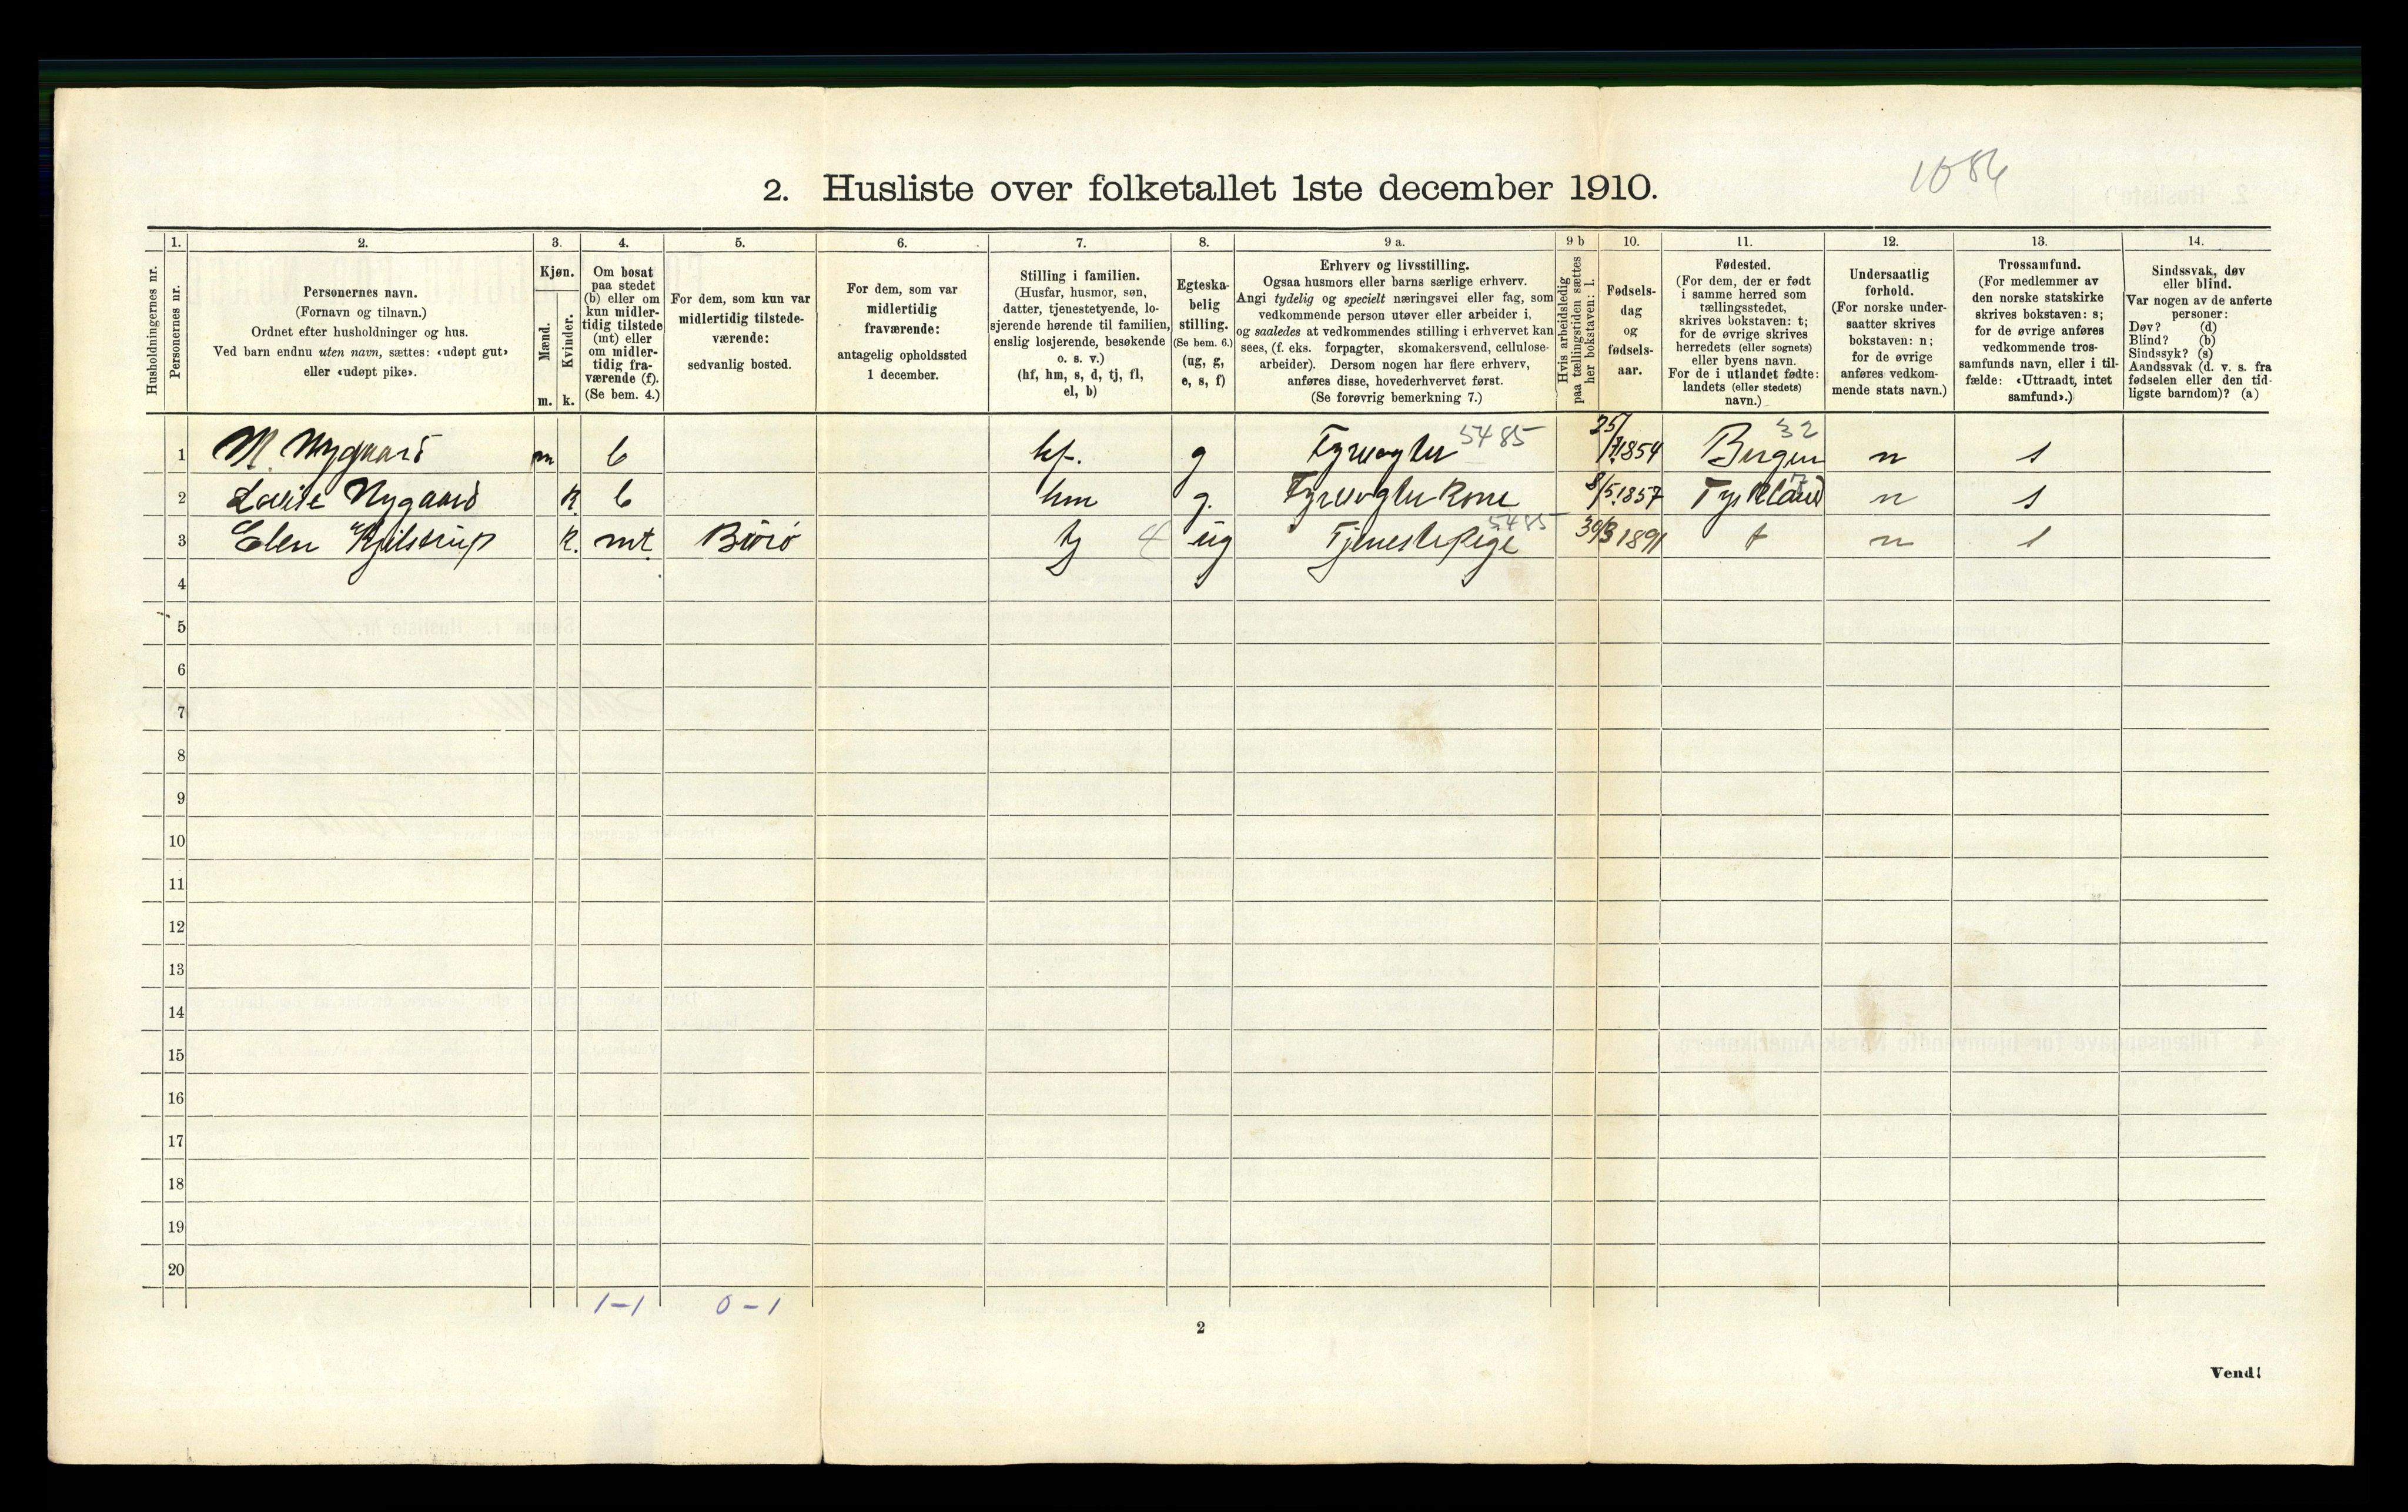 1086
2. Husliste over folketallet 1ste december 1910.
1. 2. 3. 4. 5. 6. 7. 8. 9 a. 9 b 10. 11. 12. 13. 14.
Husholdningernes nr.
Personernes nr.
Personernes navn.
(Fornavn og tilnavn.)
Ordnet efter husholdninger og hus.
Ved barn endnu uten navn, sættes: «udøpt gut»
eller «udøpt pike».
Kjøn.
Mænd.
Kvinder.
m. k.
Om bosat
paa stedet
(b) eller om
kun midler-
tidig tilstede
(mt) eller
om midler-
tidig fra-
værende (f).
(Se bem. 4.)
For dem, som kun var
midlertidig tilstede-
værende:
sedvanlig bosted.
For dem, som var
midlertidig
fraværende:
antagelig opholdssted
1 december.
Stilling i familien.
(Husfar, husmor, søn,
datter, tjenestetyende, lo-
sjerende hørende til familien,
enslig losjerende, besøkende
o. s. v.)
(hf, hm, s, d, tj, fl,
el, b)
Egteska-
belig
stilling.
(Se bem. 6.)
(ug, g,
e, s, f)
Erhverv og livsstilling.
Ogsaa husmors eller barns særlige erhverv.
Angi tydelig og specielt næringsvei eller fag, som
vedkommende person utøver eller arbeider i,
og saaledes at vedkommendes stilling i erhvervet kan
sees, (f. eks. forpagter, skomakersvend, cellulose-
arbeider). Dersom nogen har flere erhverv,
anføres disse, hovederhvervet først.
(Se forøvrig bemerkning 7.)
Hvis arbeidsledig
paa tællingstiden sættes
her bokstaven: l.
Fødsels-
dag
og
fødsels-
aar.
Fødested.
(For dem, der er født
i samme herred som
tællingsstedet,
skrives bokstaven: t;
for de øvrige skrives
herredets (eller sognets)
eller byens navn.
For de i utlandet fødte:
landets (eller stedets)
navn.)
Undersaatlig
forhold.
(For norske under-
saatter skrives
bokstaven: n;
for de øvrige
anføres vedkom-
mende stats navn.)
Trossamfund.
(For medlemmer av
den norske statskirke
skrives bokstaven: s;
for de øvrige anføres
vedkommende tros-
samfunds navn, eller i til-
fælde: «Uttraadt, intet
samfund».)
Sindssvak, døv
eller blind.
Var nogen av de anførte
personer:
Døv? (d)
Blind? (b)
Sindssyk? (s)
Aandssvak (d. v. s. fra
fødselen eller den tid-
ligste barndom)? (a)
1 M. Nygaard m b hf. g Fyrvogter 5485 25/7 1854 Bergen 32 n s
2 Lovise Nygaard k b hm g. Fyrvogter kone 8/5 1857 Tyskland n s
3 Elen Kjilstrup k. mt Borø tj 4 ug Tjenestepige 5485 30/3 1891 t n s
4
5
6
7
8
9
10
11
12
13
14
15
16
17
18
19
20
1-1 0-1
2
Vend!